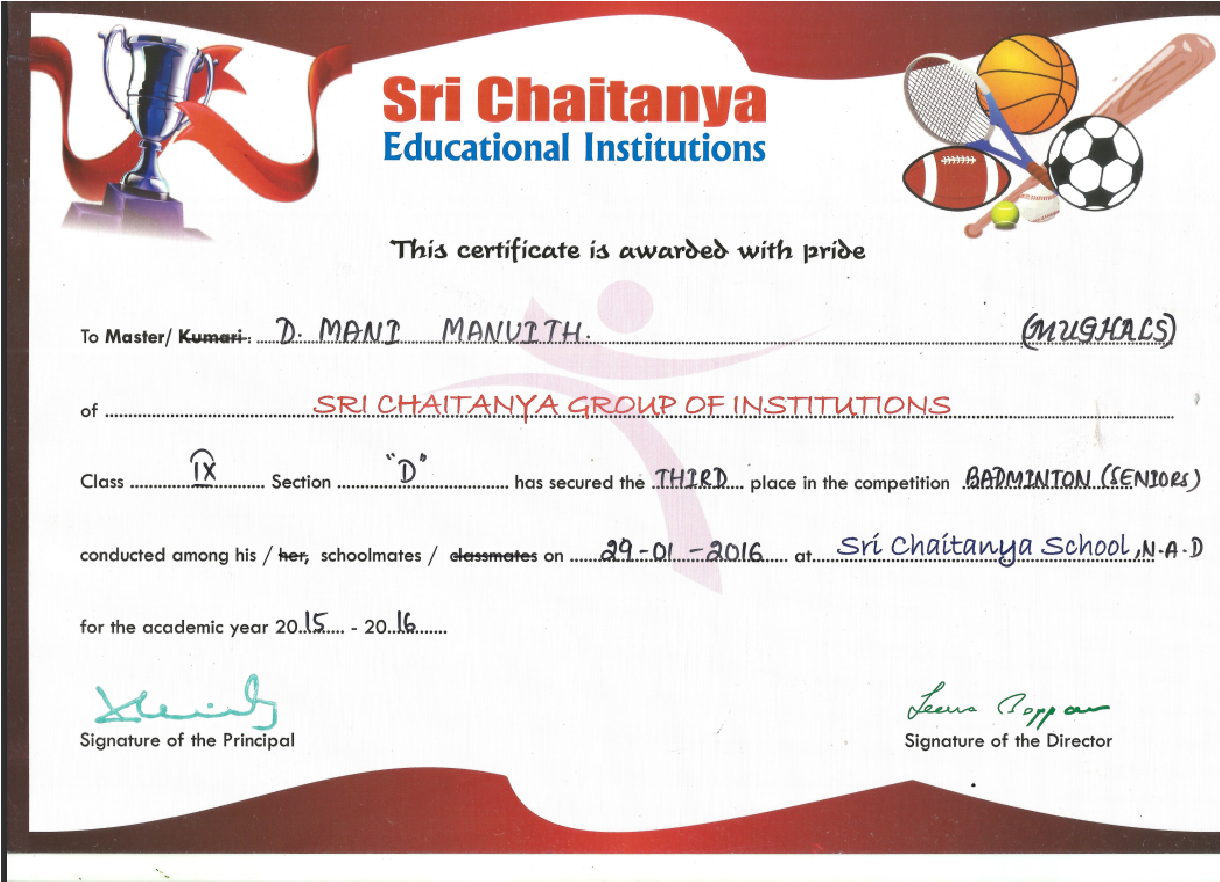 Sri Chaitanya
Educational Institutions
This certificate is awarded with pride
To Master/ Kumari: D. MANI MANVITH. (MUGHALS)
of SRI CHAITANYA GROUP OF INSTITUTIONS
Class IX Section "D" has secured the THIRD place in the competition BADMINTON (SENIORS)
conducted among his / her, schoolmates / classmates on 29-01-2016 at Sri Chaitanya School, N-A-D
for the academic year 2015 - 2016
Signature of the Principal Signature of the Director